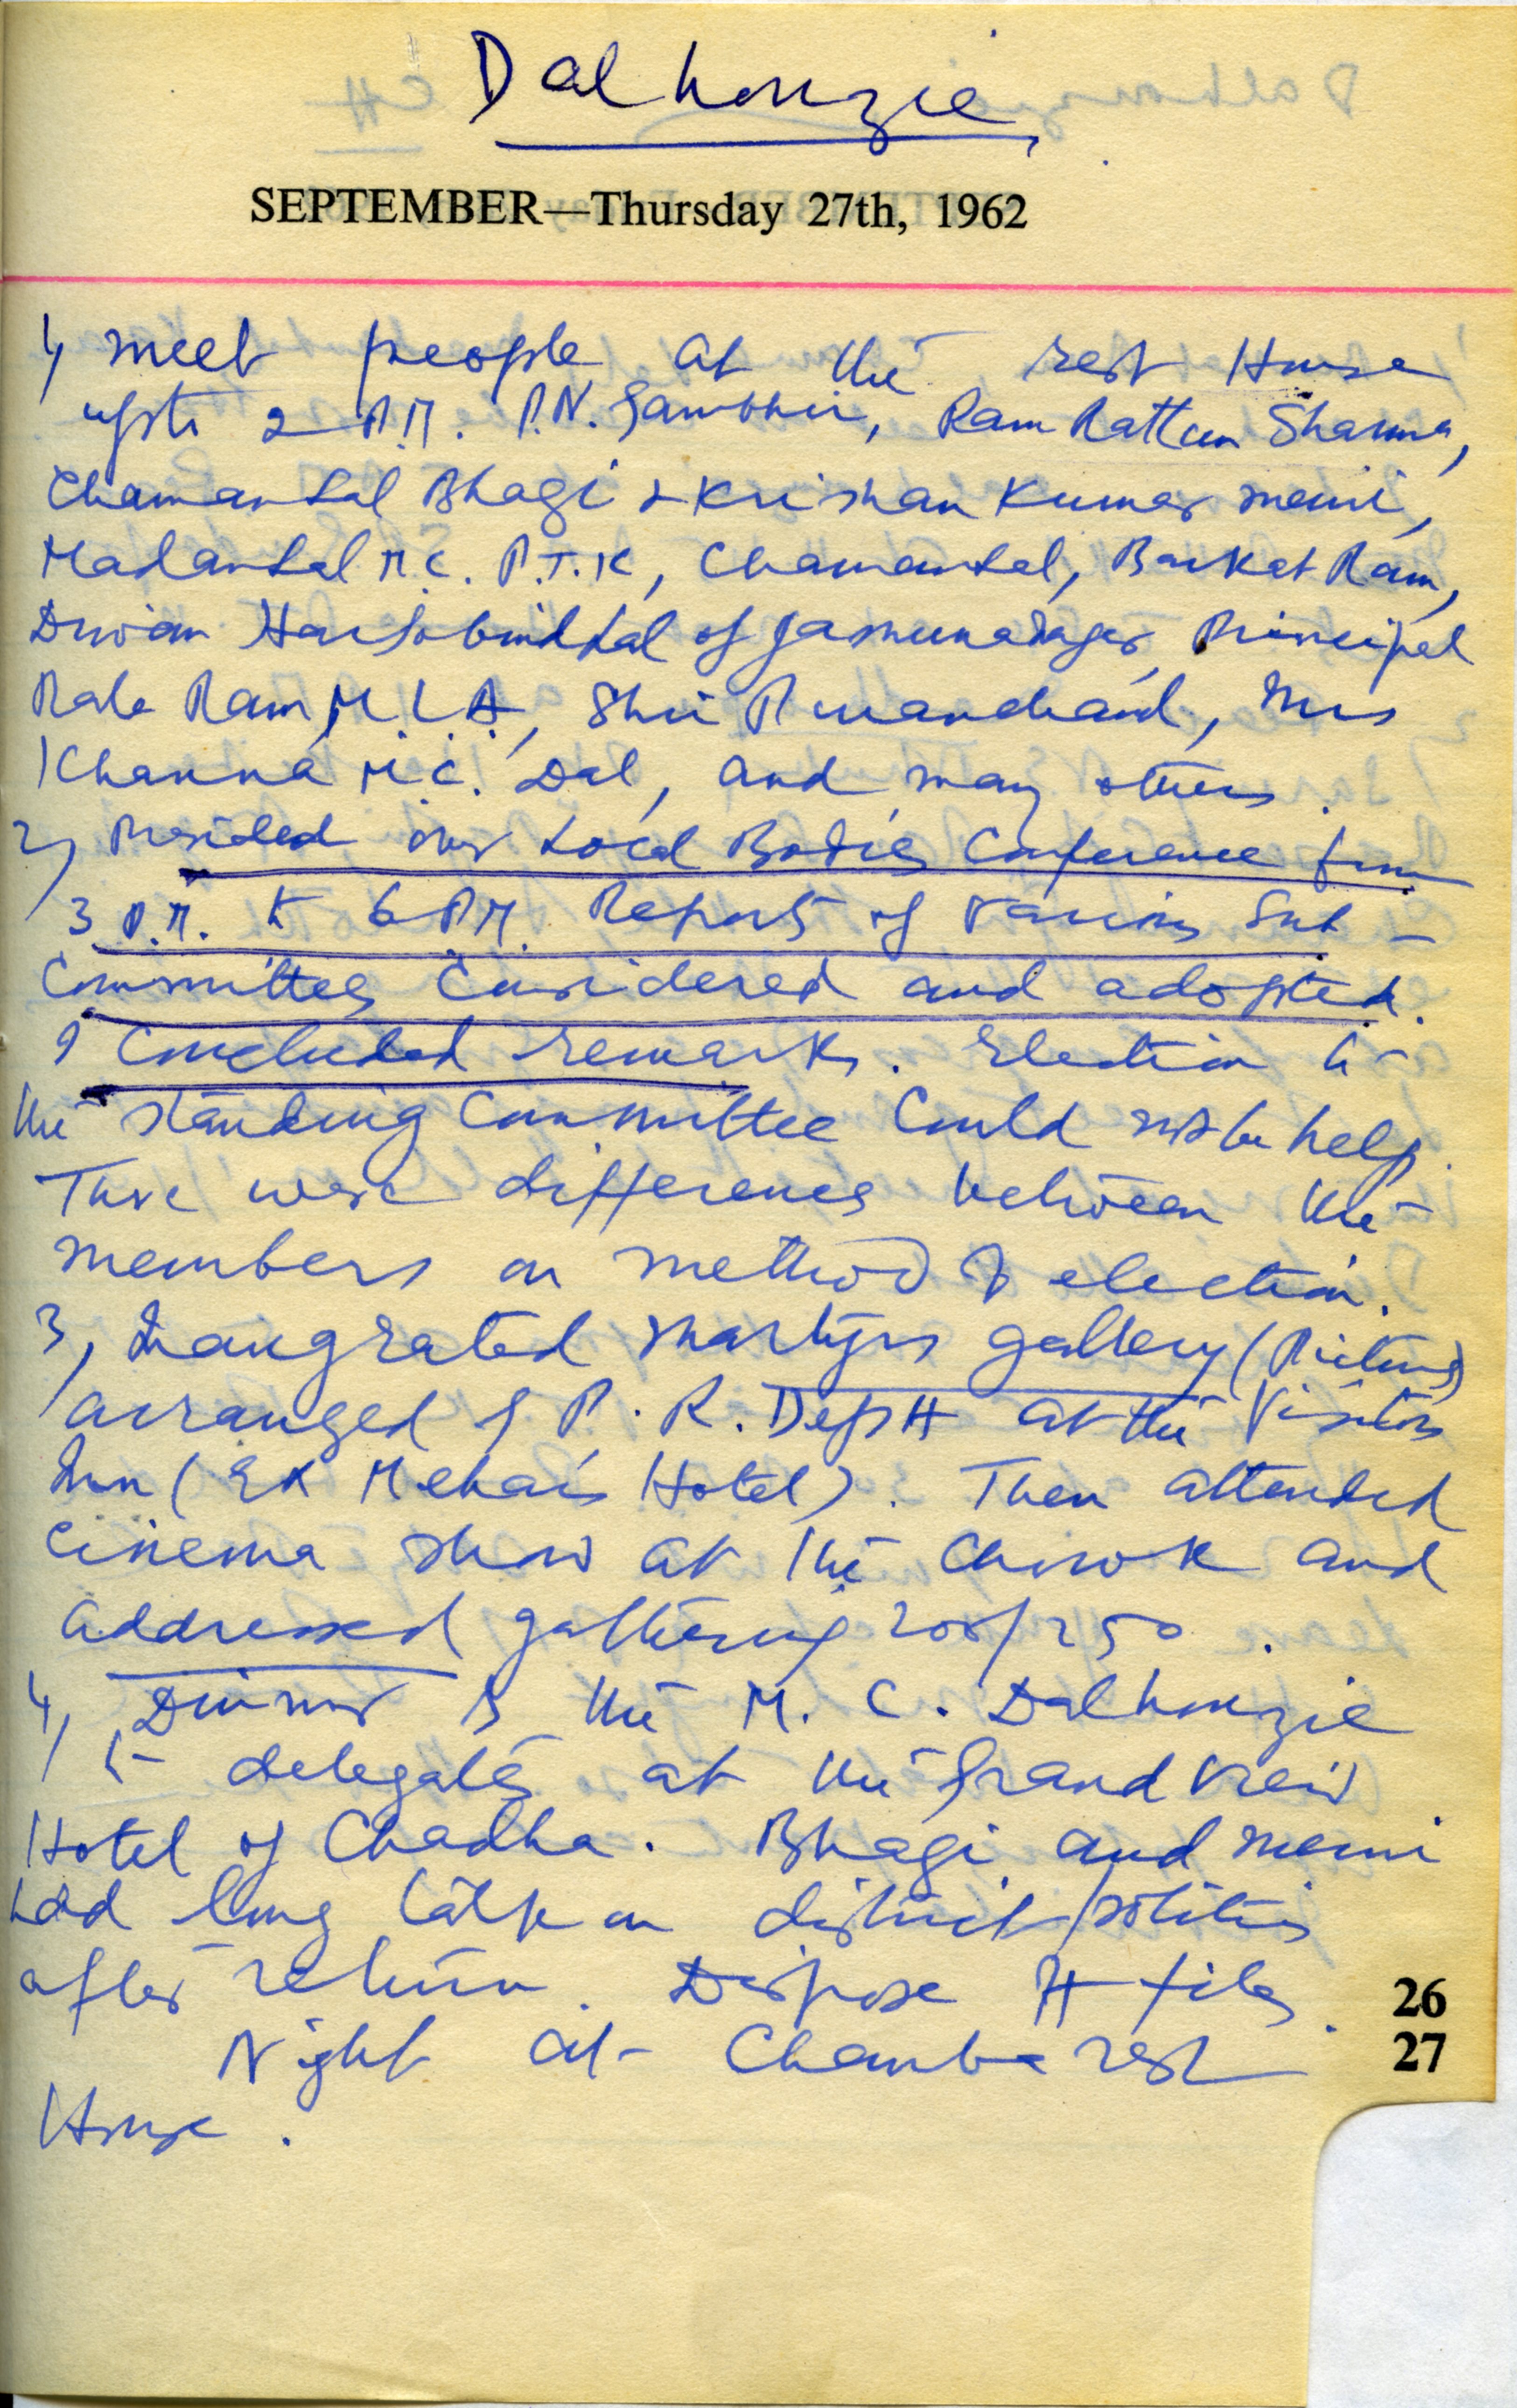 Dalhouzie
SEPTEMBER—Thursday 27th, 1962
1, meet people at the rest House
upto 2 P.M. P.N. Gambhir, Ram Rattan Sharma,
Chamanlal Bhagi & Krishan Kumar
Madanlal M.C. P.T.K, Chamanlal, Barkat Ram,
Diwan Hargobindlal of Principal
Rala Ram, M.L.A., Shri Mrs
Khanna M.C. Dal, and many others.
2, Presided over Local Bodies Conference from
3 P.M. to 6 P.M. Reports of various Sub-
Committees Considered and adopted.
I Concluded remarks. Election to
the standing Committee Could not be help.
There were differences between the
members on method of election.
3, Inaugrated Martyrs gallery (Pictures)
arranged by P.R. Deptt at the Visitors
Inn (Ex Hotel). Then attended
Cinema show at the Chowk and
addressed gathering 200/250.
4, Dinner by the M.C. Dalhouzie
to delegates at the Grand View
Hotel of Chadha. Bhagi and
had long talk on district politics
after return. Dispose off files.
Night at Chamba rest
House.
26
27